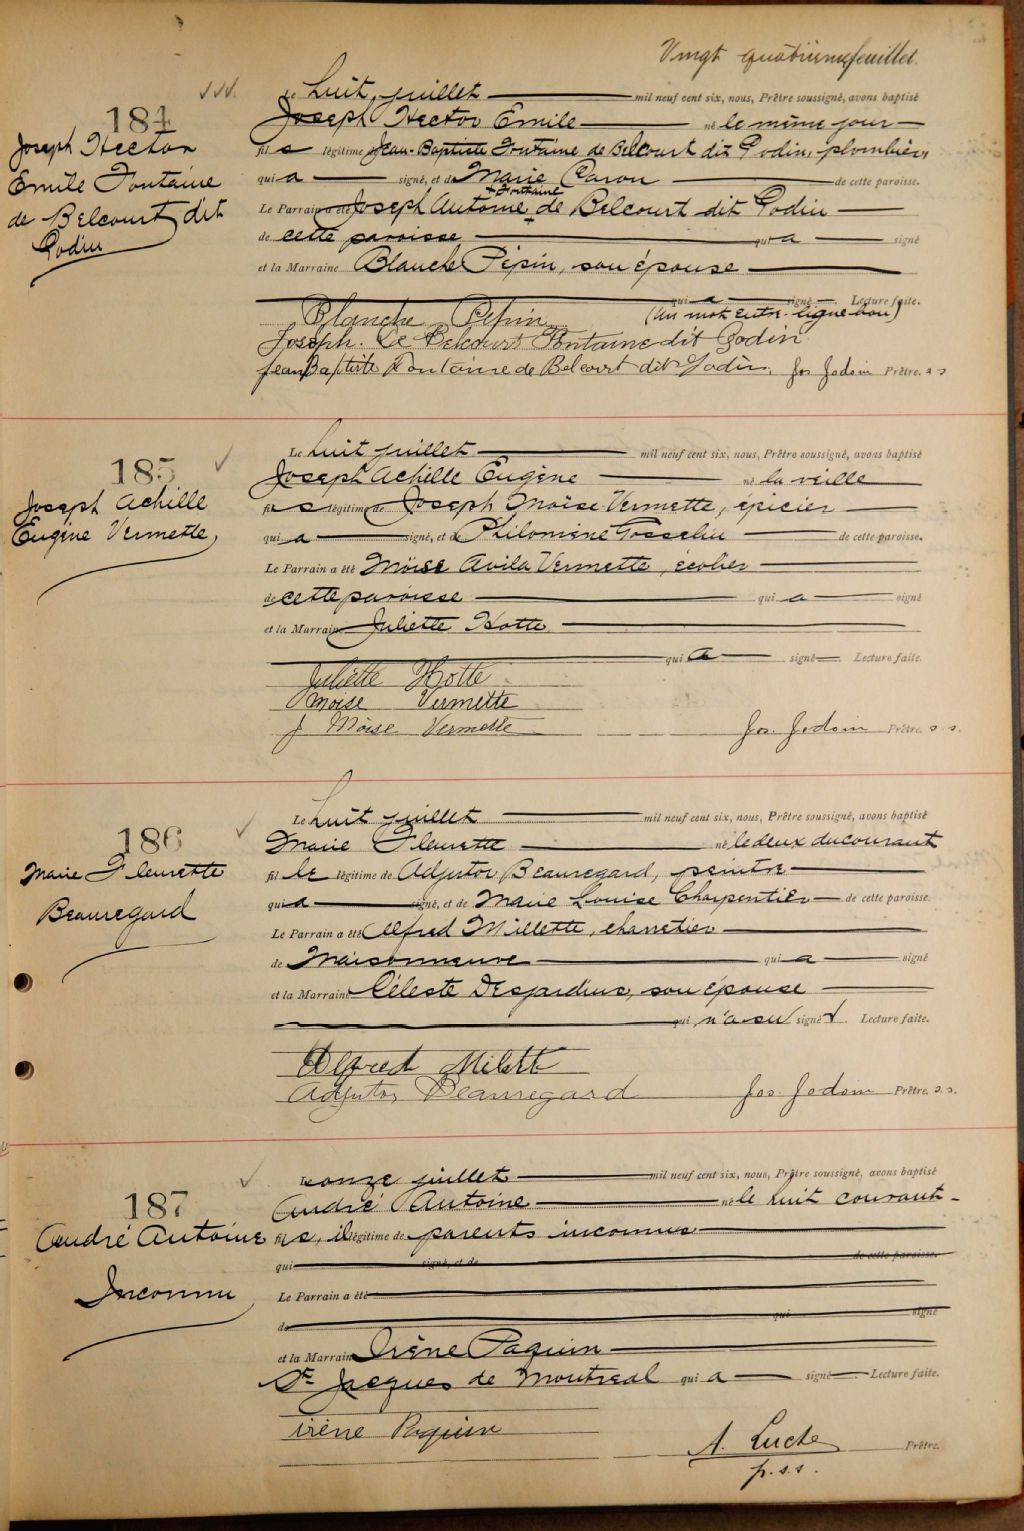 Vingt quatrième feuillet.
184
Joseph Hector
Emile Fontaine
de Belcourt dit
Godin
Le huit juillet mil neuf cent six, nous, Prêtre soussigné, avons baptisé
Joseph Hector Emile né le même jour
fils légitime de Jean-Baptiste Fontaine de Belcourt dit Godin, plombier,
qui a signé, et de Marie Caron de cette paroisse.
+ Fontaine
Le Parrain a été Joseph Antoine + de Belcourt dit Godin
de cette paroisse qui a signé
et la Marraine Blanche Pépin, son épouse
qui a signé. Lecture faite.
(Un mot entre-ligne bon)
Blanche Pepin
Joseph. De Belcourt Fontaine dit Godin
Jean Baptiste Fontaine de Belcourt dit Godin. Jos Jodoin Prêtre. s s
185
Joseph Achille
Eugène Vermette,
Le huit juillet mil neuf cent six, nous, Prêtre soussigné, avons baptisé
Joseph Achille Eugène né la veille
fils légitime de Joseph Moïse Vermette, épicier
qui a signé, et de Philomène Gosselin de cette paroisse.
Le Parrain a été Moïse Avila Vermette, écolier
de cette paroisse qui a signé
et la Marraine Juliette Hotte
qui a signé Lecture faite.
Juliette Hotte
Moise Vermette
J Moïse Vermette Jos. Jodoin Prêtre. s.s.
186
Marie Fleurette
Beauregard
Le huit juillet mil neuf cent six, nous, Prêtre soussigné, avons baptisé
Marie Fleurette né le deux du courant
fille légitime de Adjutor Beauregard, peintre
qui a signé, et de Marie Louise Charpentier de cette paroisse
Le Parrain a été Alfred Millette, charretier
de Maisonneuve qui a signé
et la Marraine Céleste Desjardins, son épouse
qui n'a su signer. Lecture faite.
Alfred Milett
Adjutor Beauregard Jos. Jodoin Prêtre. s.s.
187
André Antoine
Inconnu
Le onze juillet mil neuf cent six, nous, Prêtre soussigné, avons baptisé
André Antoine né le huit courant -
fils, illégitime de parents inconnus
qui signé, et de de cette paroisse.
Le Parrain a été
de qui signé
et la Marraine Irène Paquin
St Jacques de Montreal qui a signé Lecture faite.
irène Paquin
A. Luche Prêtre.
p.s.s.